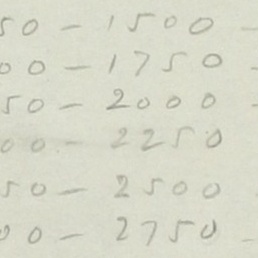 50 - 1500 -
00 - 1750 -
50 - 2000 -
00 - 2250
50 - 2500 -
00 - 2750 -